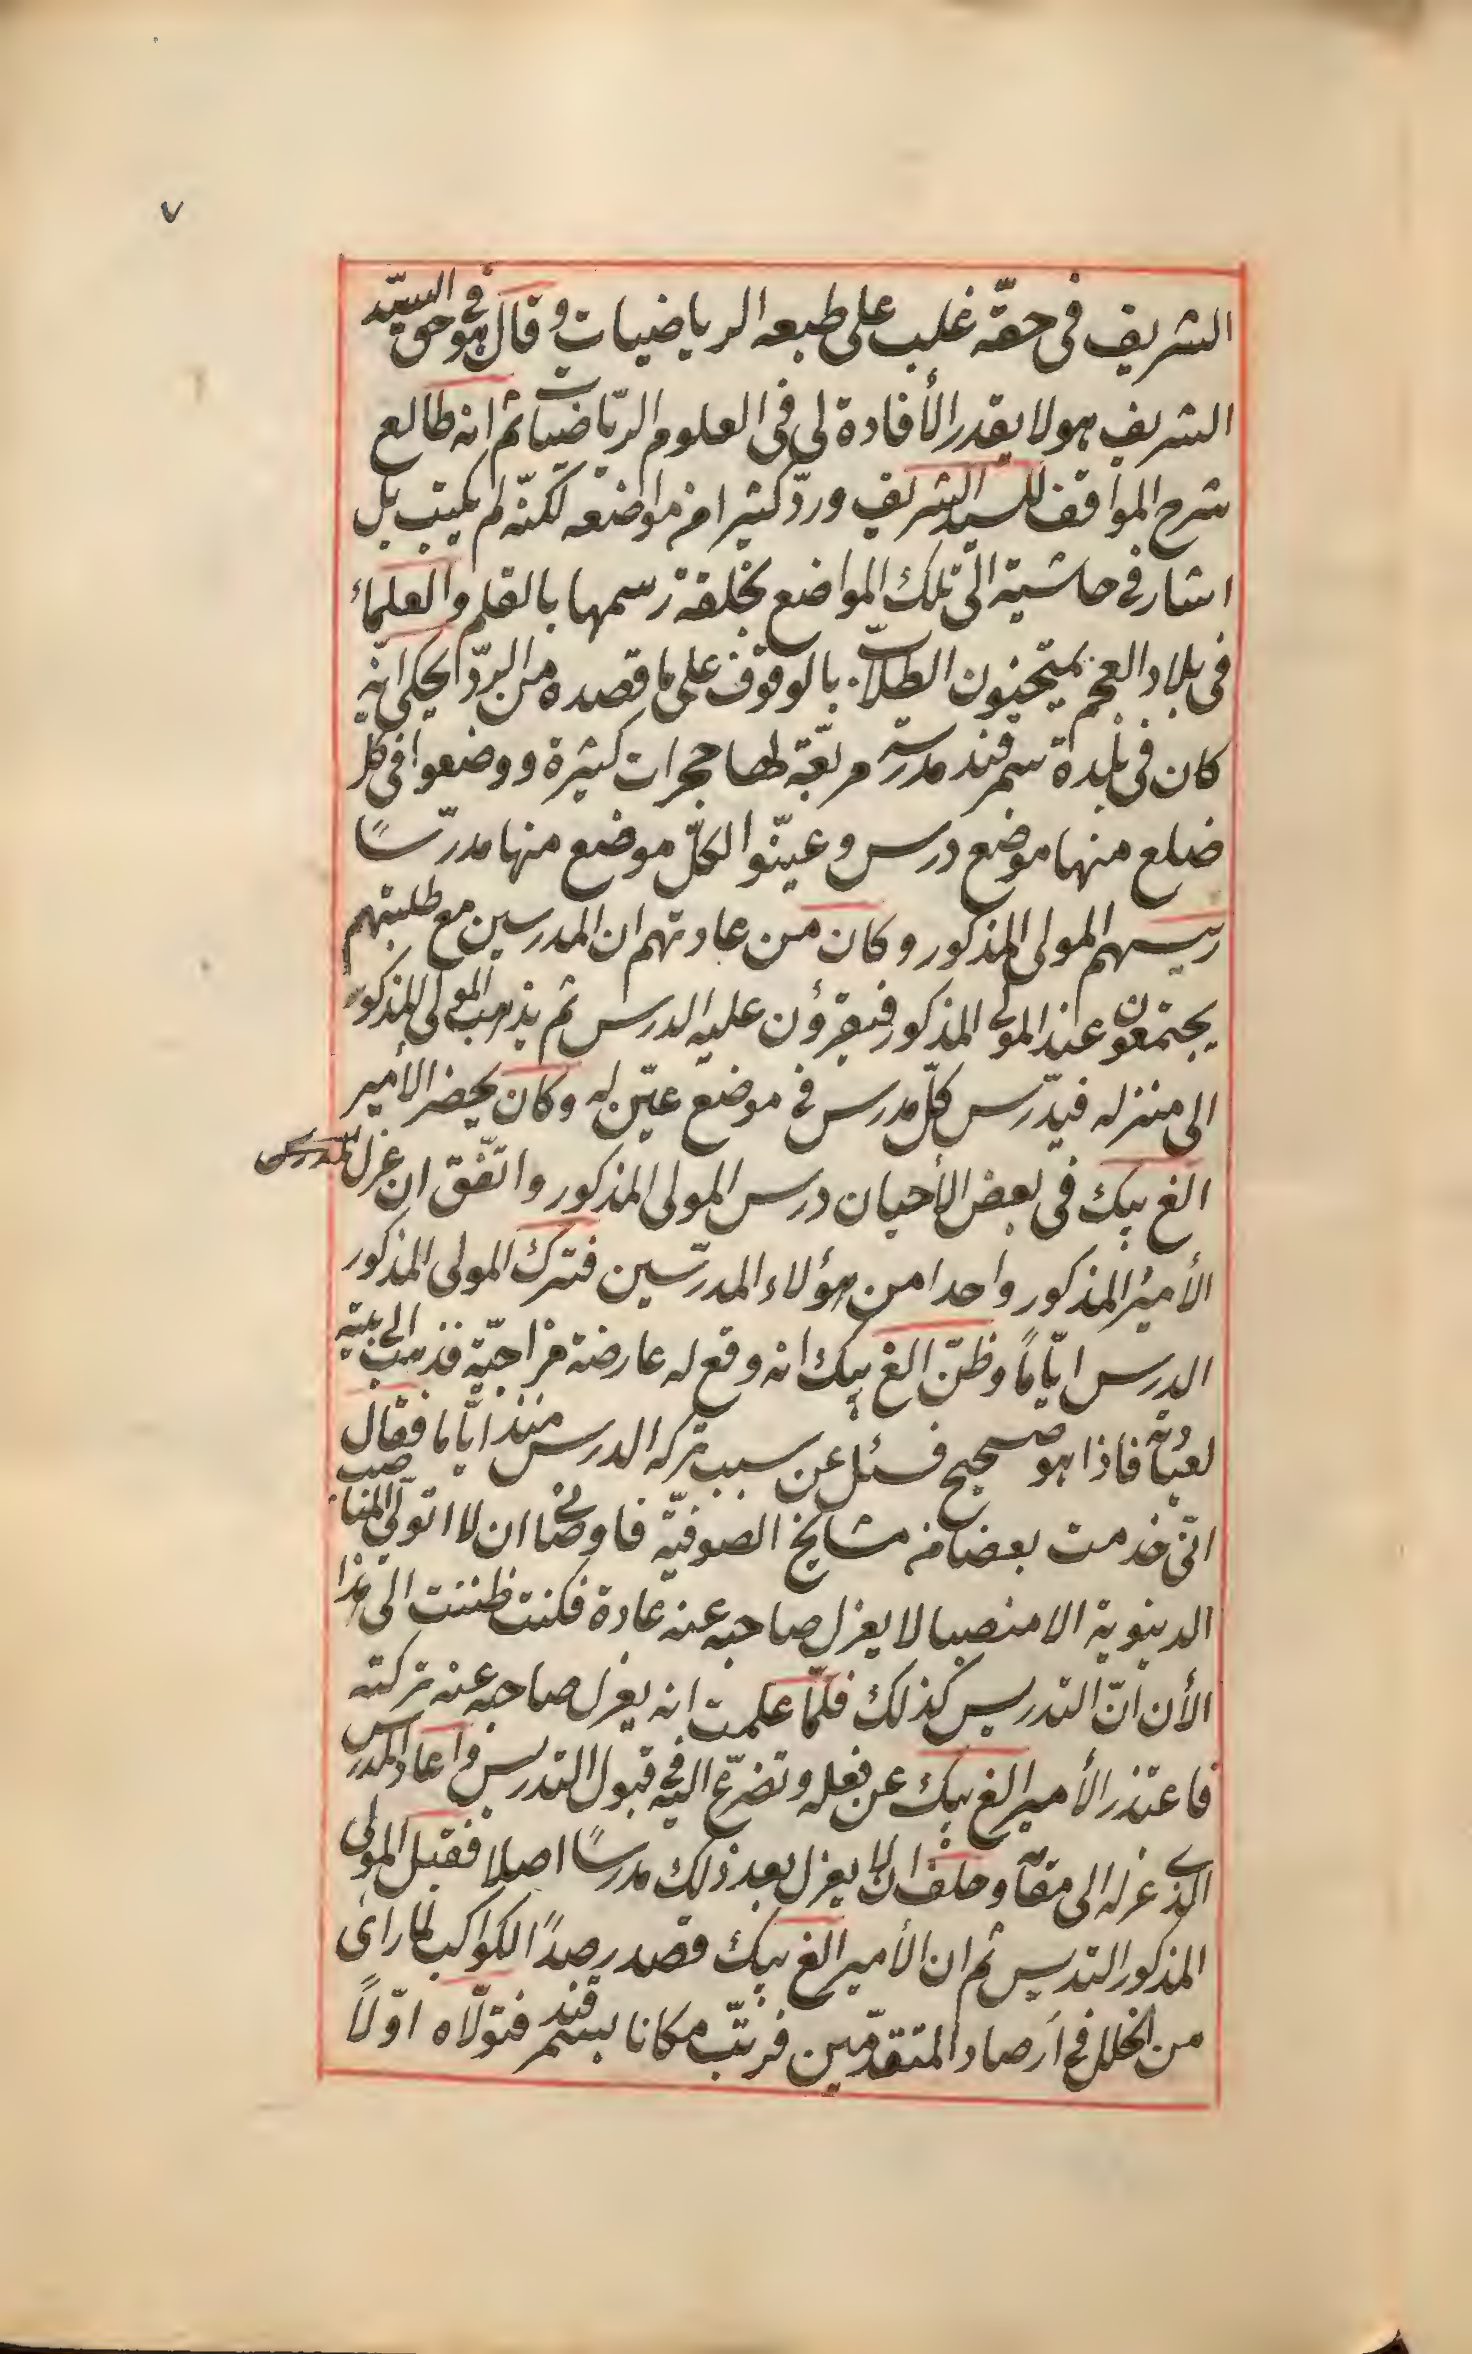 ٧
الشريف فى حقّه غلب على طبعه الرياضيات وقال هو فى حق السيّد
الشريف هو لا يقدر الأفادة لى فى العلوم الرّياضيات ثم انه طالع
شرح المواقف للسيد الشريف وردّ كثيرا من مواضعه لكنّه لم يكتب بل
اشار فى حاشية الى تلك المواضع بحلقة رسمها بالقلم والعلماء
فى بلاد العجم يمتحنون الطلاّب بالوقوف على ما قصده من الردّ يحكى انّه
كان فى بلدة سمرقند مدرسة مربّعة لها حجرات كثيرة ووضعوا فى كل
ضلع منها موضع درس وعيّنوا لكلّ موضع منها مدرّسًا
رييسهم المولى المذكور وكان من عادتهم ان المدرسين مع طلبتهم
يجتمعون عند المولى المذكور فيقرؤن عليه الدرس ثم يذهب المولى المذكور
الى منزله فيدّرس كلّ مدرس فى موضع عيّن له وكان يحضر الأمير
الغ بيك فى بعض الأحيان درس المولى المذكور واتّفق ان عزل
الأمير المذكور واحدا من هؤلاء المدرّسين فترك المولى المذكور
الدرس ايّامًا وظنّ الغ بيك انه وقع له عارضة مزاجيّة فذهب الى بيته
لعيادته فاذا هو صحيح فسئل عن سبب تركه الدرس منذ ايّاما فقال
انّى خدمت بعضا من مشايخ الصوفيّة فاوصانى ان لا اتولّى المناصب
الدينوية الا منصبا لا يعزل صاحبه عنه عادة فكنت ظننت الى هذا
الأن انّ التدريس كذلك فلمّا علمت انه يعزل صاحبه عنه تركته
فاعتذر الأمير الغ بيك عن فعله وتضرّع اليه فى قبول التدريس واعاد المدرس
الذى عزله الى مقامه وحلف ان لا يعزل بعد ذلك مدرسًا اصلا فقبل المولى
المذكور التدريس ثم ان الأمير الغ بيك قصد رصدًا لكواكب لما رأى
من الخلل فى أرصاد المتقدّمين فرتّب مكانا بسمرقند فتولّاه اوّلًا